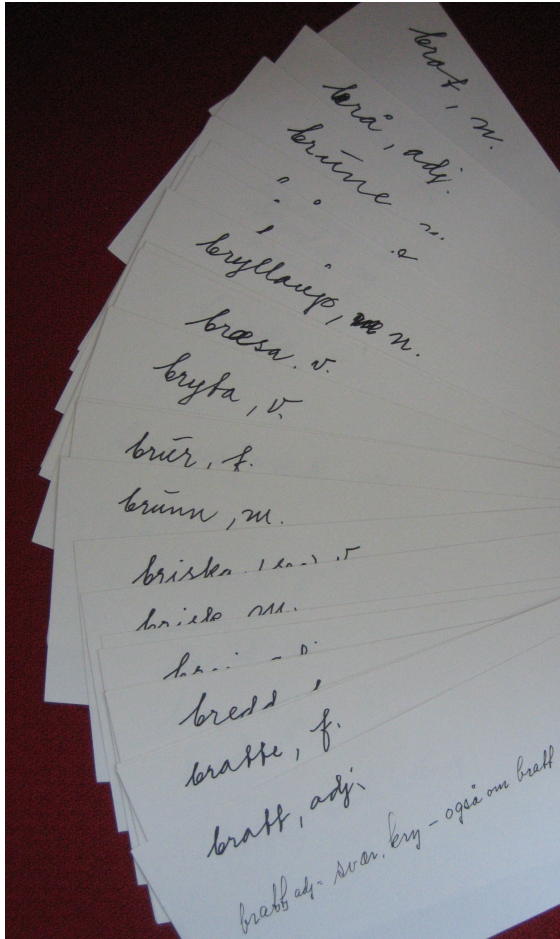 brot, n.
brå, adj.
brūne m.
bryllaup, n.
bræsa. v.
bryta, v.
brūr, f.
brūnn, m.
briska v
bredd
bratte, f.
bratt, adj.
bratt adj = svær, kry – også om bratt